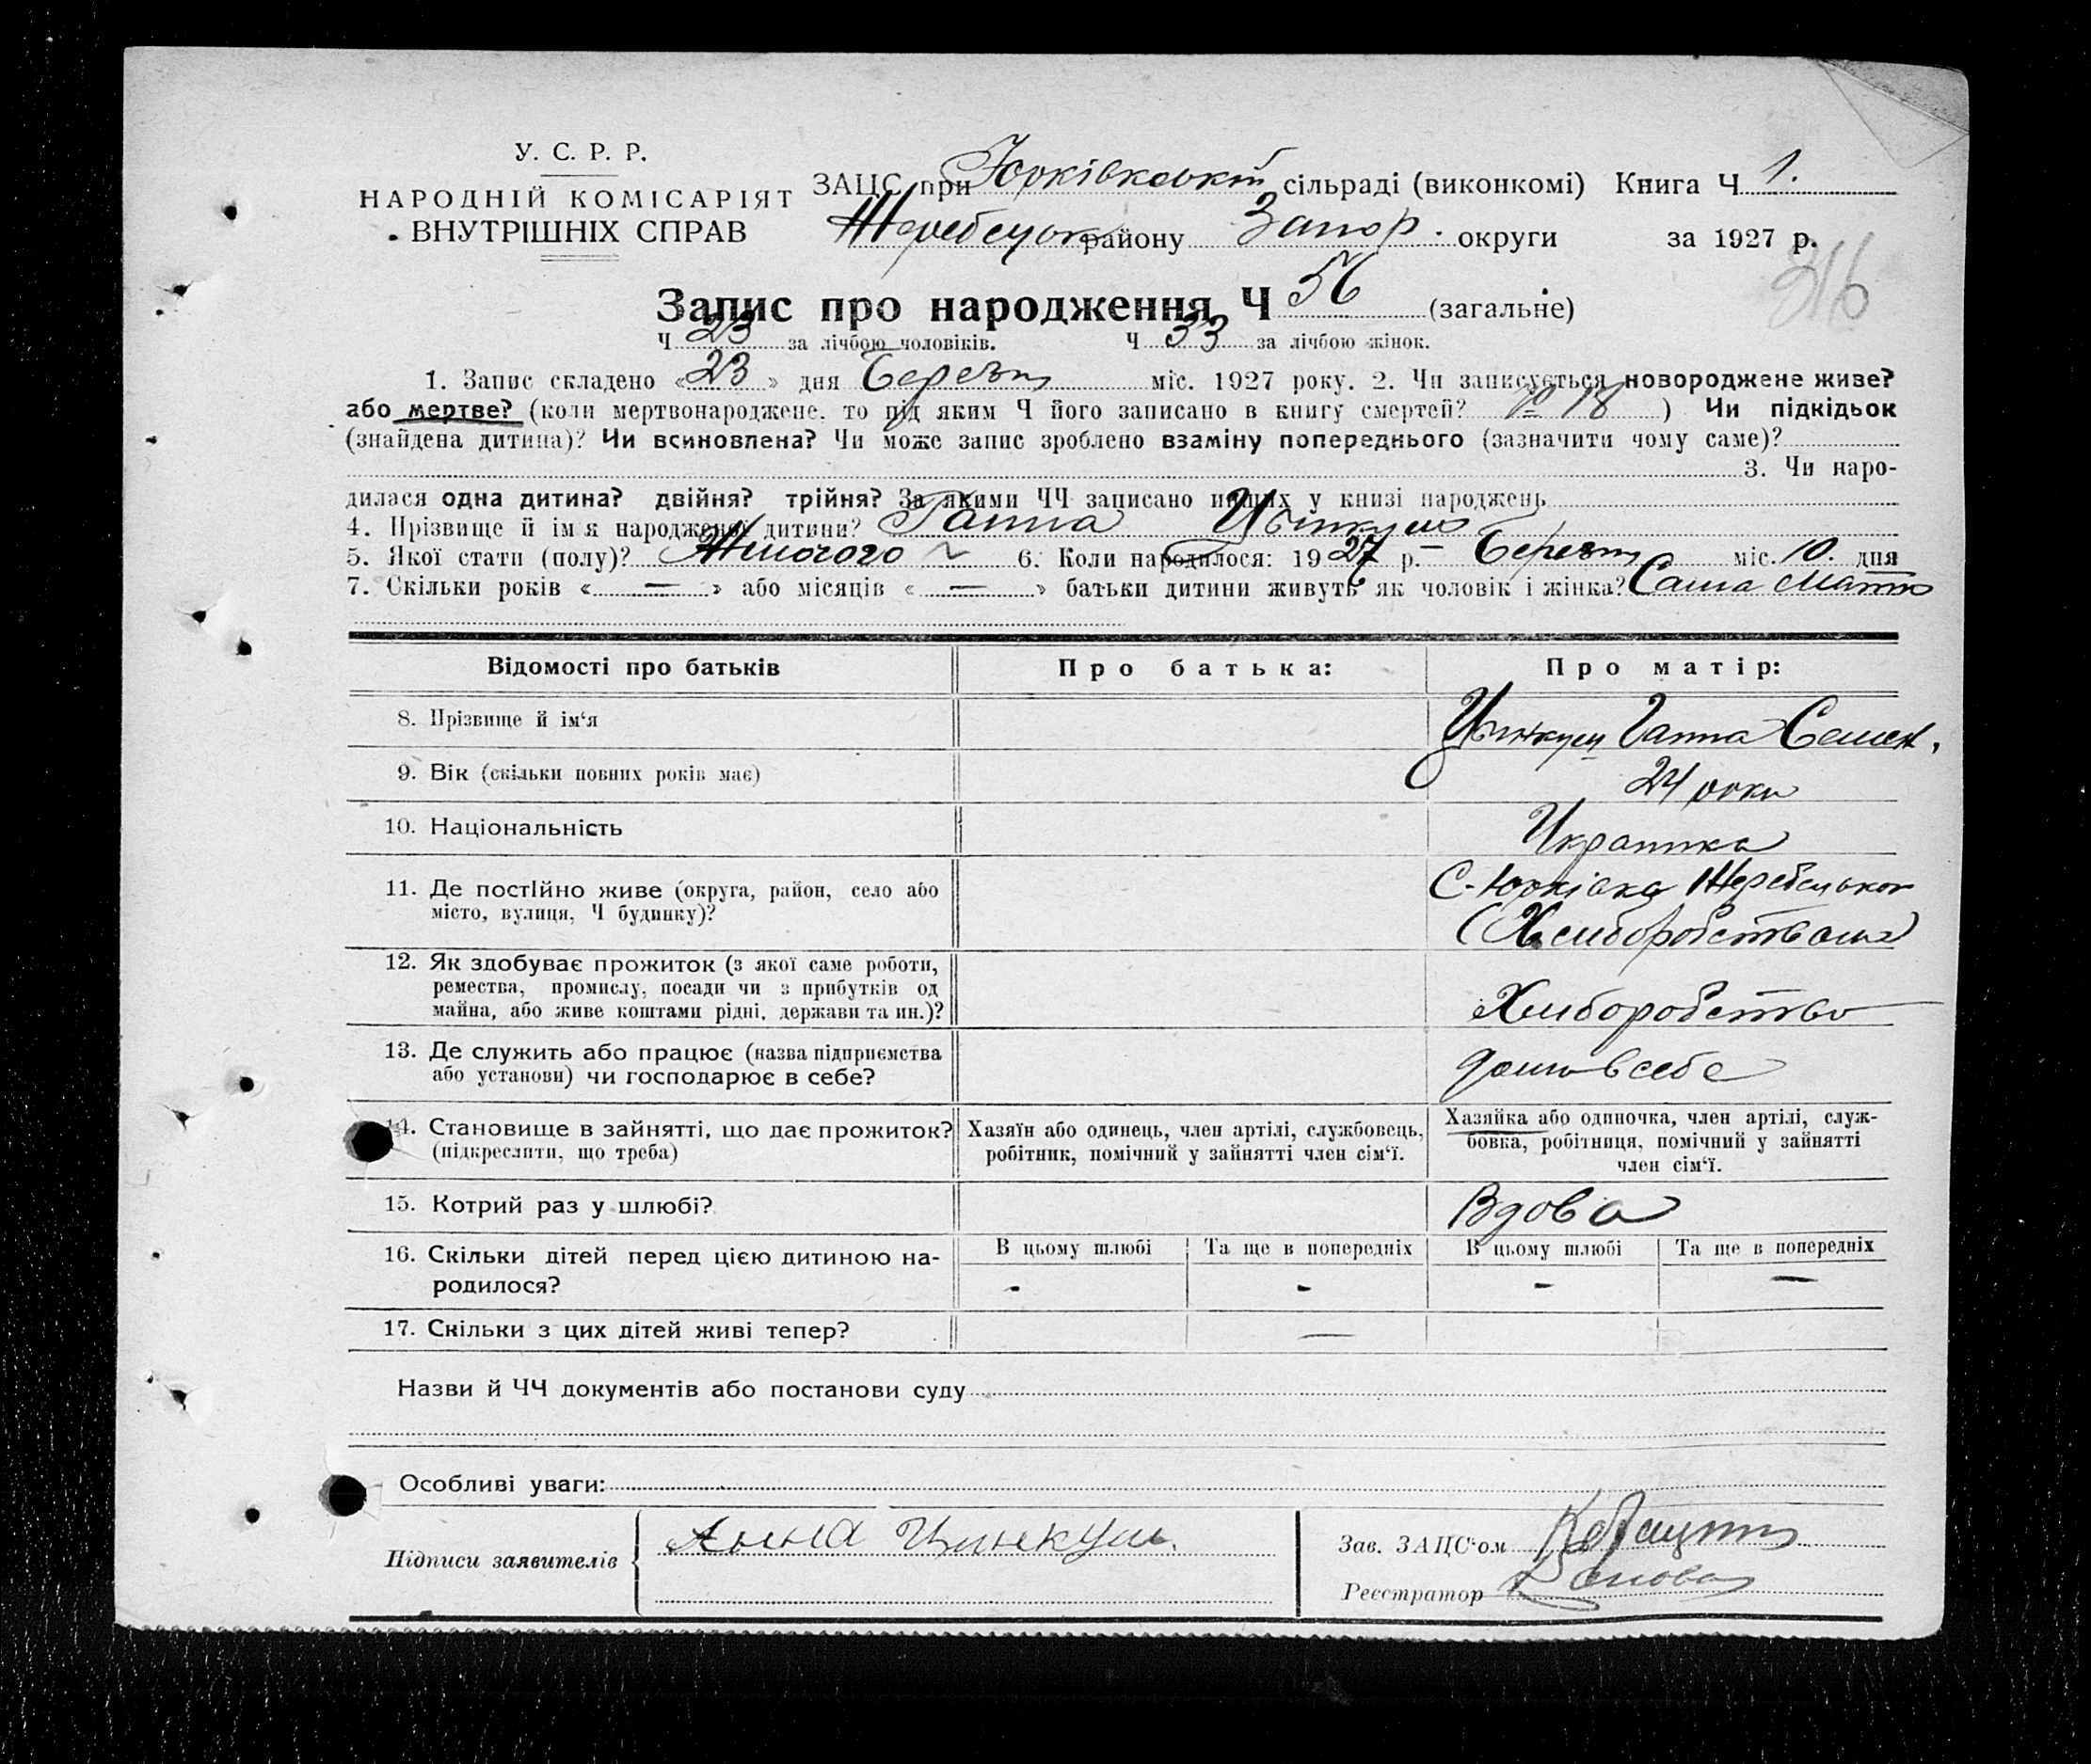 У. С. Р. Р.
НАРОДНІЙ КОМІСАРІЯТ
ВНУТРІШНІХ СПРАВ
ЗАЦС при Юрківській сільраді (виконкомі) Книга Ч 1.
Жеребецьк району Запор. округи за 1927 р.
316
Запис про народження Ч 56 (загальне)
Ч 23 за лічбою чоловіків. Ч 33 за лічбою жінок.
1. Запис складено «23» дня Березня міс. 1927 року. 2. Чи записується новороджене живе?
або мертве? (коли мертвонароджене. то під яким Ч його записано в книгу смертей? № 18 ) Чи підкідьок
(знайдена дитина)? Чи всиновлена? Чи може запис зроблено взаміну попереднього (зазначити чому саме)?
3. Чи наро-
дилася одна дитина? двійня? трійня? За якими ЧЧ записано инших у книзі народжень
4. Прізвище й ім'я народженої дитини? Ганна
5. Якої стати (полу)? Жіночого 6. Коли народилося: 1927 р. — Березня міс. 10. дня
7. Скільки років «—» або місяців «—» батьки дитини живуть як чоловік і жінка? Сама Мати
Відомості про батьків Про батька: Про матір:
8. Прізвище й ім'я Ганна Семен.
9. Вік (скільки повних років має) 24 роки
10. Національність Украінка
11. Де постійно живе (округа, район, село або С. Юрківка Жеребецького
місто, вулиця, Ч будинку)? (Хлиборобством)
12. Як здобуває прожиток (з якої саме роботи,
ремества, промислу, посади чи з прибутків од
майна, або живе коштами рідні, держави та ин.)? Хлиборобство
13. Де служить або працює (назва підприємства
або установи) чи господарює в себе? дома в себе
14. Становище в зайнятті, що дає прожиток? Хазяїн або одинець, член артілі, службовець, Хазяйка або одиночка, член артілі, служ-
(підкреслити, що треба) робітник, помічний у зайнятті член сім'ї. бовка, робітниця, помічний у зайнятті
член сім'ї.
15. Котрий раз у шлюбі? Вдова
16. Скільки дітей перед цією дитиною на- В цьому шлюбі Та ще в попередніх В цьому шлюбі Та ще в попередніх
родилося? - - - —
17. Скільки з цих дітей живі тепер? —
Назви й ЧЧ документів або постанови суду
Особливі уваги:
Підписи заявителів Анна Цинкуш.
Зав. ЗАЦС'ом
Реєстратор